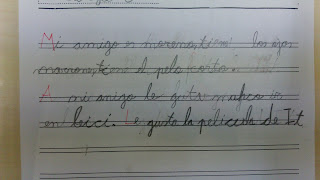 Mi amigo es moreno, tiene los ojos
marrones, tiene el pelo corto.
A mi amigo le gusta mucho ir
en bici. Le gusta la pelicula de Tet